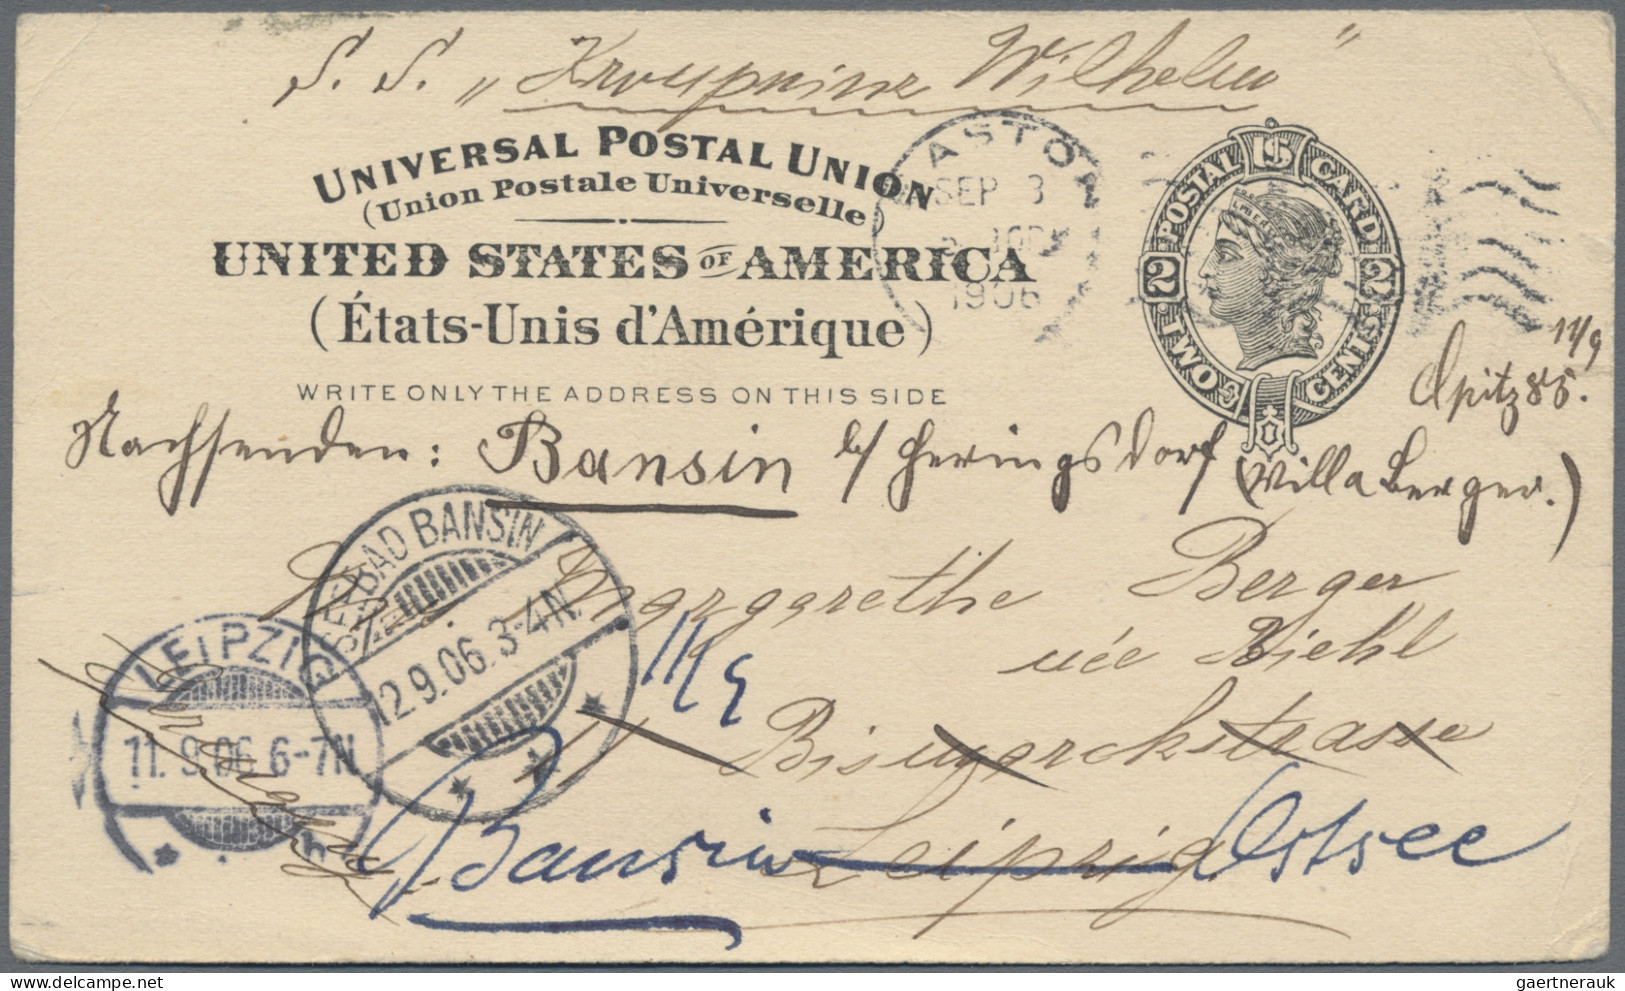 S. S. „Kronprinz Wilhelm"
UNIVERSAL POSTAL UNION
(Union Postale Universelle)
UNITED STATES OF AMERICA
(États-Unis d'Amérique)
WRITE ONLY THE ADDRESS ON THIS SIDE
ASTON
SEP 3
1906
POSTAL CARD
2 2
TWO CENTS
11/9
Opitz 85.
Nachsenden: Bansin b/ Heringsdorf (Villa Berger.)
SEEBAD BANSIN
12.9.06. 3-4N.
Margarethe Berger
née Biehl
Bismarckstrasse
LEIPZIG
11.9.06 6-7N
Leipzig
Bansin Ostsee
gaertnerauk